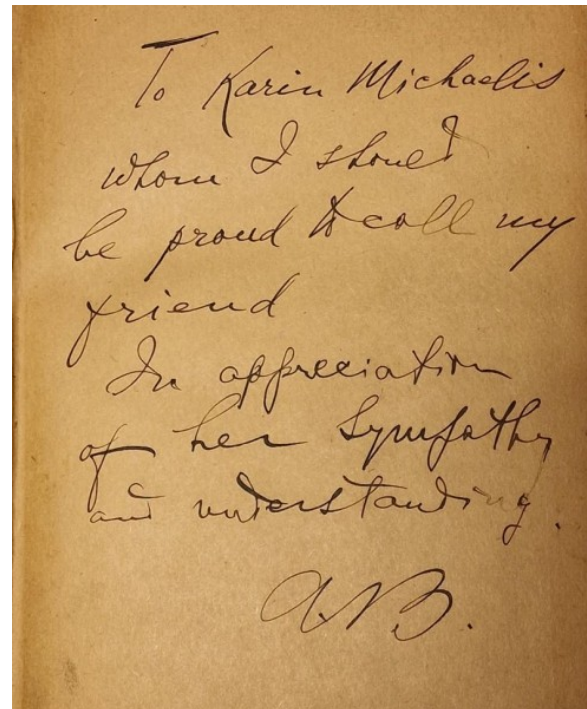 To Karin Michaelis
whom I should
be proud to call my
friend
In appreciation
of her sympathy
and understanding.
A.B.